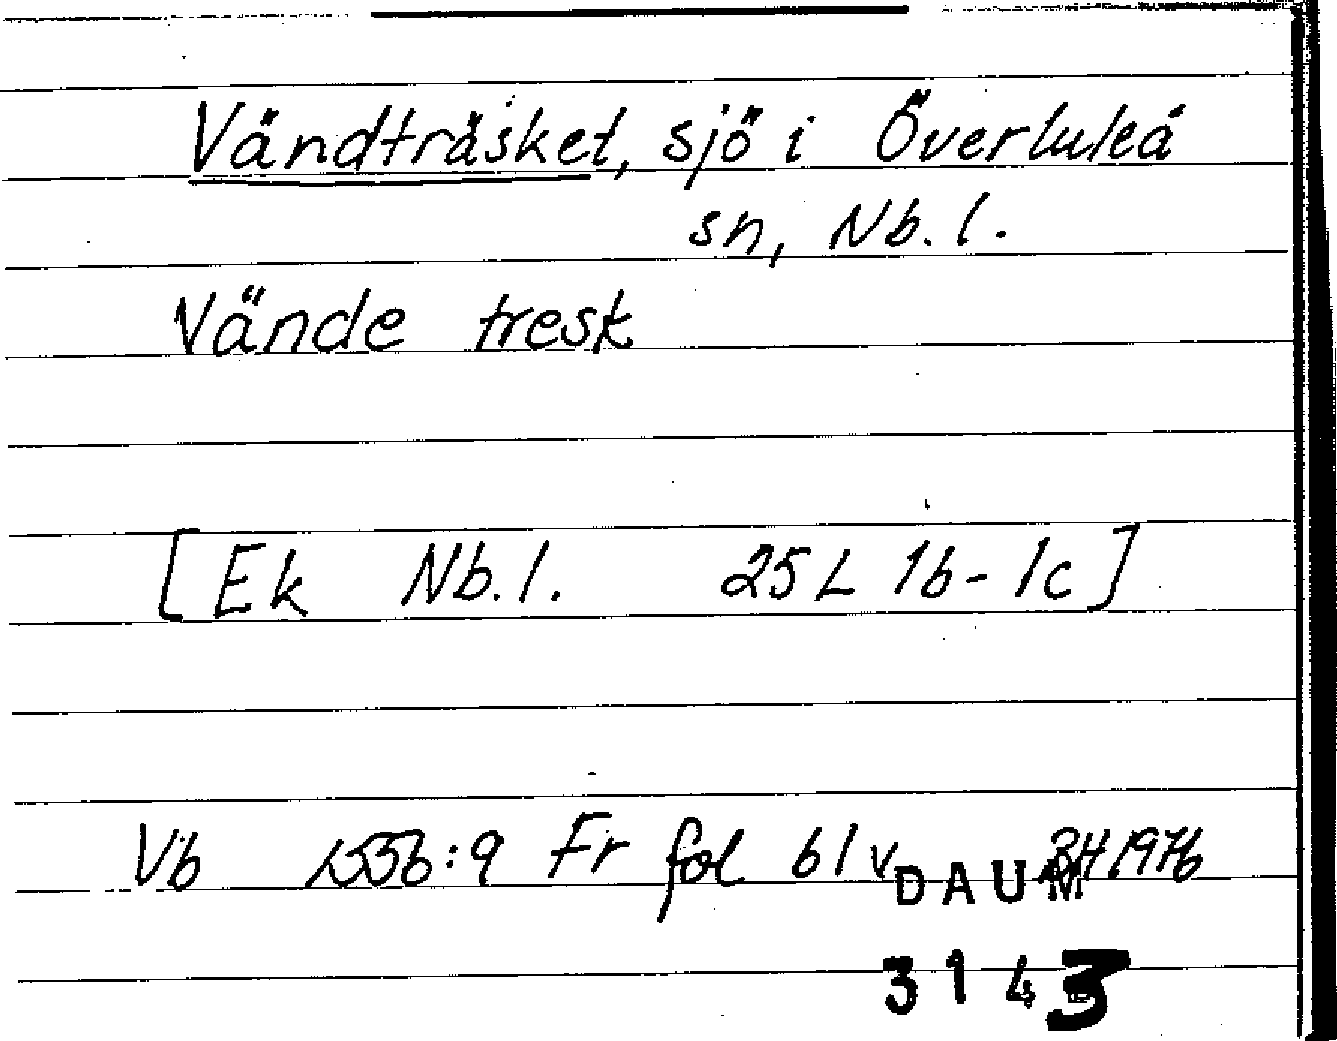 Vändträsket, sjö i Överluleå
sn, Nb. l.
Vände tresk
[Ek Nb. l. 25L 1b-1c]
Vb 1556:9 Fr fol 61v BH 1976
DAUM
3143